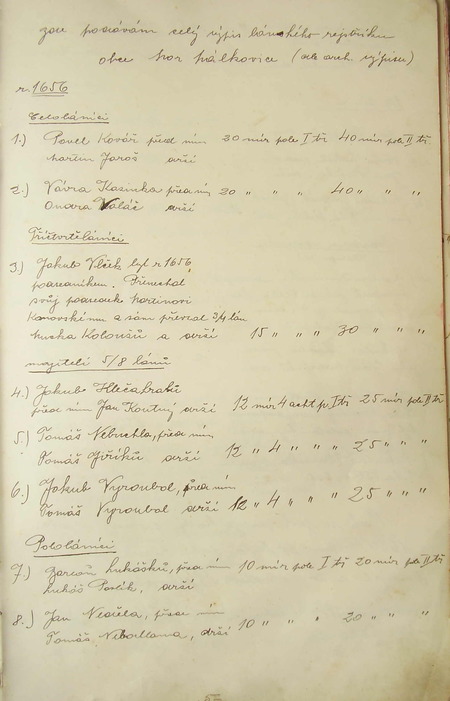 zou podávám celý výpis lánského rejstříku
obce Hor Hálkovice (dle arch. výpisu)
r. 1656
Celoláníci
1.) Pavel Kovář před ním 20 měr pole I tř 40 měr pole II tř
Martin Jaroš drží
2.) Vávra Kasinka před ním 20 " " " 40 " " "
Ondra Valáč drží
Tříčtvrtěláníci
3.) Jakub Vlček byl r 1656
poddaníkem. Přenechal
svůj podsedek Martinovi
Kanovskému a sám převzal 3/4 lán
Macka Koloušů a drží 15 " " " 30 " " "
majitelé 5/8 lánů
4.) Jakub
před ním Jan Koutný drží 12 měr 4 acht p. I tř 25 měr pole II tř
5.) Tomáš Nebuchla, před ním
Tomáš Jiříků drží 12 " 4 " " " 25 " " "
6.) Jakub Vyroubal, před ním
Tomáš Vyroubal drží 12 " 4 " " " 25 " " "
Pololáníci
7.) Lukášků, před ním 10 měr pole I tř 20 měr pole II tř
Lukáš Pavlík, drží
8.) Jan Neděla, před ním
Tomáš, drží 10 " " " 20 " " "